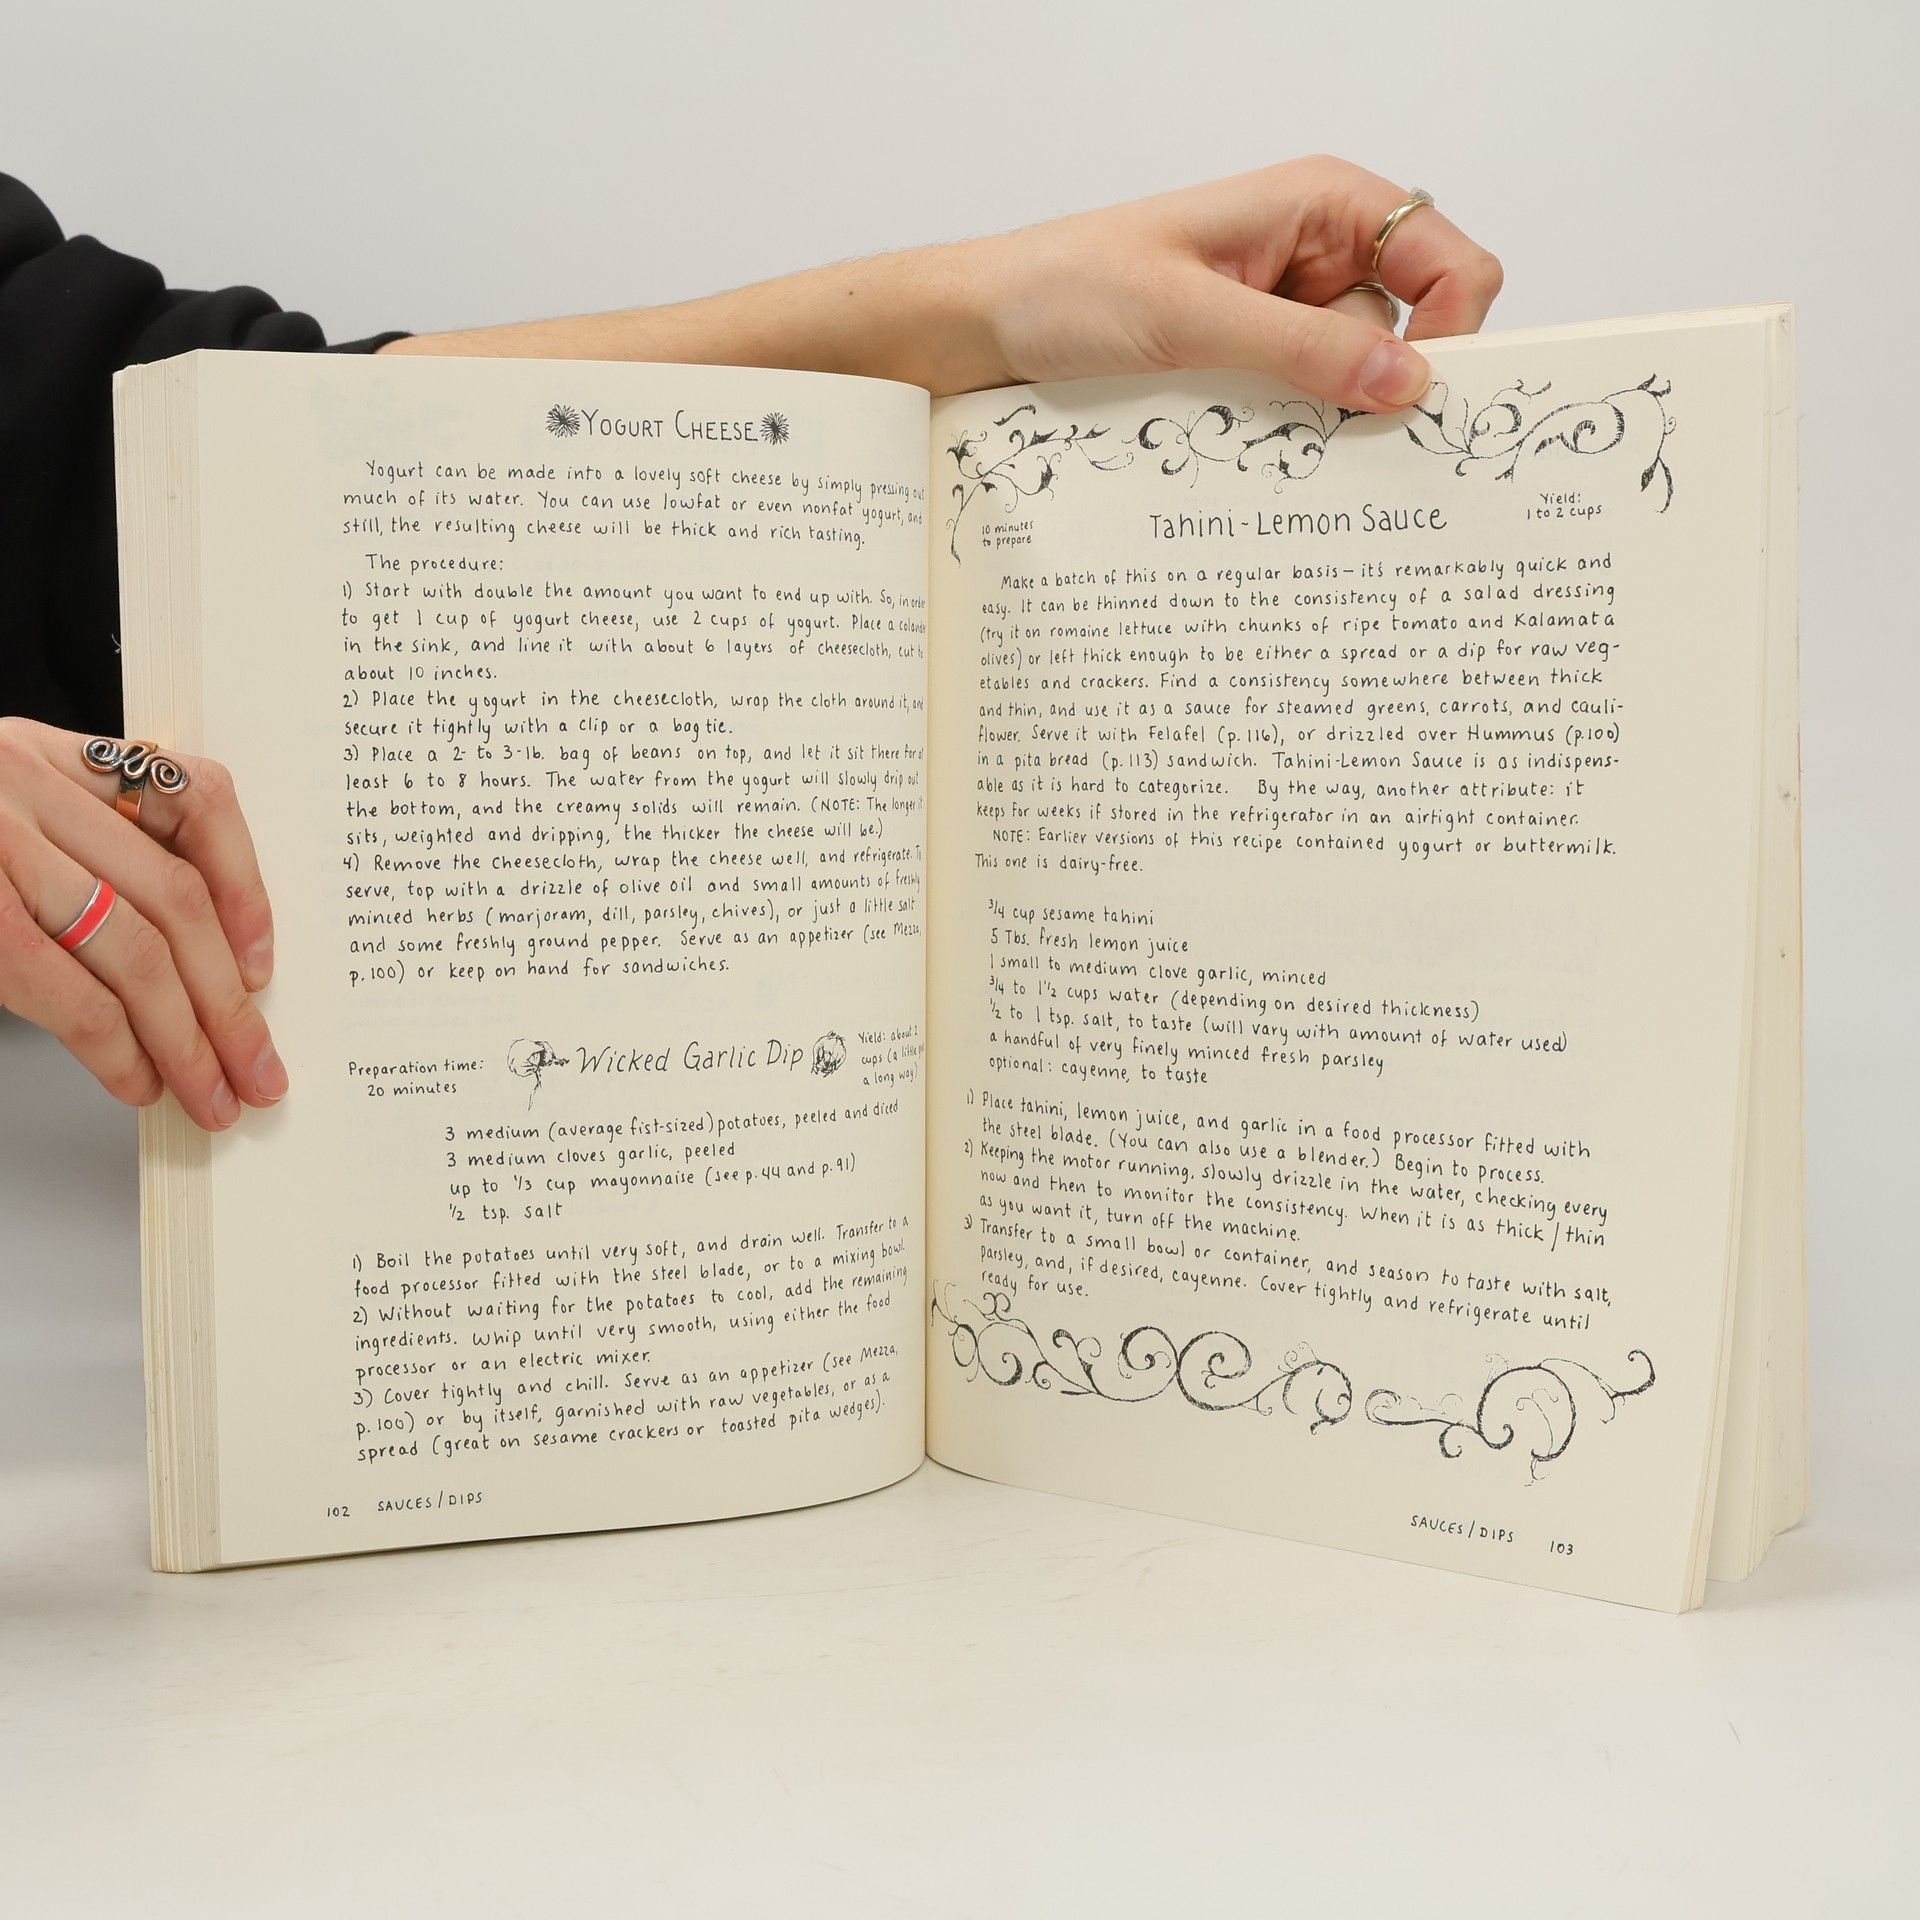 YOGURT CHEESE
Yogurt can be made into a lovely soft cheese by simply pressing out
much of its water. You can use lowfat or even nonfat yogurt, and
still, the resulting cheese will be thick and rich tasting.
The procedure:
1) Start with double the amount you want to end up with. So, in order
to get 1 cup of yogurt cheese, use 2 cups of yogurt. Place a colander
in the sink, and line it with about 6 layers of cheesecloth, cut to
about 10 inches.
2) Place the yogurt in the cheesecloth, wrap the cloth around it, and
secure it tightly with a clip or a bag tie.
3) Place a 2- to 3-lb. bag of beans on top, and let it sit there for at
least 6 to 8 hours. The water from the yogurt will slowly drip out
the bottom, and the creamy solids will remain. (NOTE: The longer it
sits, weighted and dripping, the thicker the cheese will be.)
4) Remove the cheesecloth, wrap the cheese well, and refrigerate. To
serve, top with a drizzle of olive oil and small amounts of freshly
minced herbs (marjoram, dill, parsley, chives), or just a little salt
and some freshly ground pepper. Serve as an appetizer (see Mezza,
p. 100) or keep on hand for sandwiches.
Preparation time:
20 minutes
Wicked Garlic Dip
Yield: about 2
cups (a little
a long way)
3 medium (average fist-sized) potatoes, peeled and diced
3 medium cloves garlic, peeled
up to 1/3 cup mayonnaise (see p. 44 and p. 91)
1/2 tsp. salt
1) Boil the potatoes until very soft, and drain well. Transfer to a
food processor fitted with the steel blade, or to a mixing bowl.
2) Without waiting for the potatoes to cool, add the remaining
ingredients. Whip until very smooth, using either the food
processor or an electric mixer.
3) Cover tightly and chill. Serve as an appetizer (see Mezza,
p. 100) or by itself, garnished with raw vegetables, or as a
spread (great on sesame crackers or toasted pita wedges).
102 SAUCES/DIPS
10 minutes
to prepare
Tahini-Lemon Sauce
Yield:
1 to 2 cups
Make a batch of this on a regular basis — it's remarkably quick and
easy. It can be thinned down to the consistency of a salad dressing
(try it on romaine lettuce with chunks of ripe tomato and Kalamata
olives) or left thick enough to be either a spread or a dip for raw veg-
etables and crackers. Find a consistency somewhere between thick
and thin, and use it as a sauce for steamed greens, carrots, and cauli-
flower. Serve it with Felafel (p. 116), or drizzled over Hummus (p. 100)
in a pita bread (p. 113) sandwich. Tahini-Lemon Sauce is as indispens-
able as it is hard to categorize. By the way, another attribute: it
keeps for weeks if stored in the refrigerator in an airtight container.
NOTE: Earlier versions of this recipe contained yogurt or buttermilk.
This one is dairy-free.
3/4 cup sesame tahini
5 Tbs. fresh lemon juice
1 small to medium clove garlic, minced
3/4 to 1 1/2 cups water (depending on desired thickness)
1/2 to 1 tsp. salt, to taste (will vary with amount of water used)
a handful of very finely minced fresh parsley
optional: cayenne, to taste
1) Place tahini, lemon juice, and garlic in a food processor fitted with
the steel blade. (You can also use a blender.) Begin to process.
2) Keeping the motor running, slowly drizzle in the water, checking every
now and then to monitor the consistency. When it is as thick / thin
as you want it, turn off the machine.
3) Transfer to a small bowl or container, and season to taste with salt,
parsley, and, if desired, cayenne. Cover tightly and refrigerate until
ready for use.
SAUCES/DIPS 103